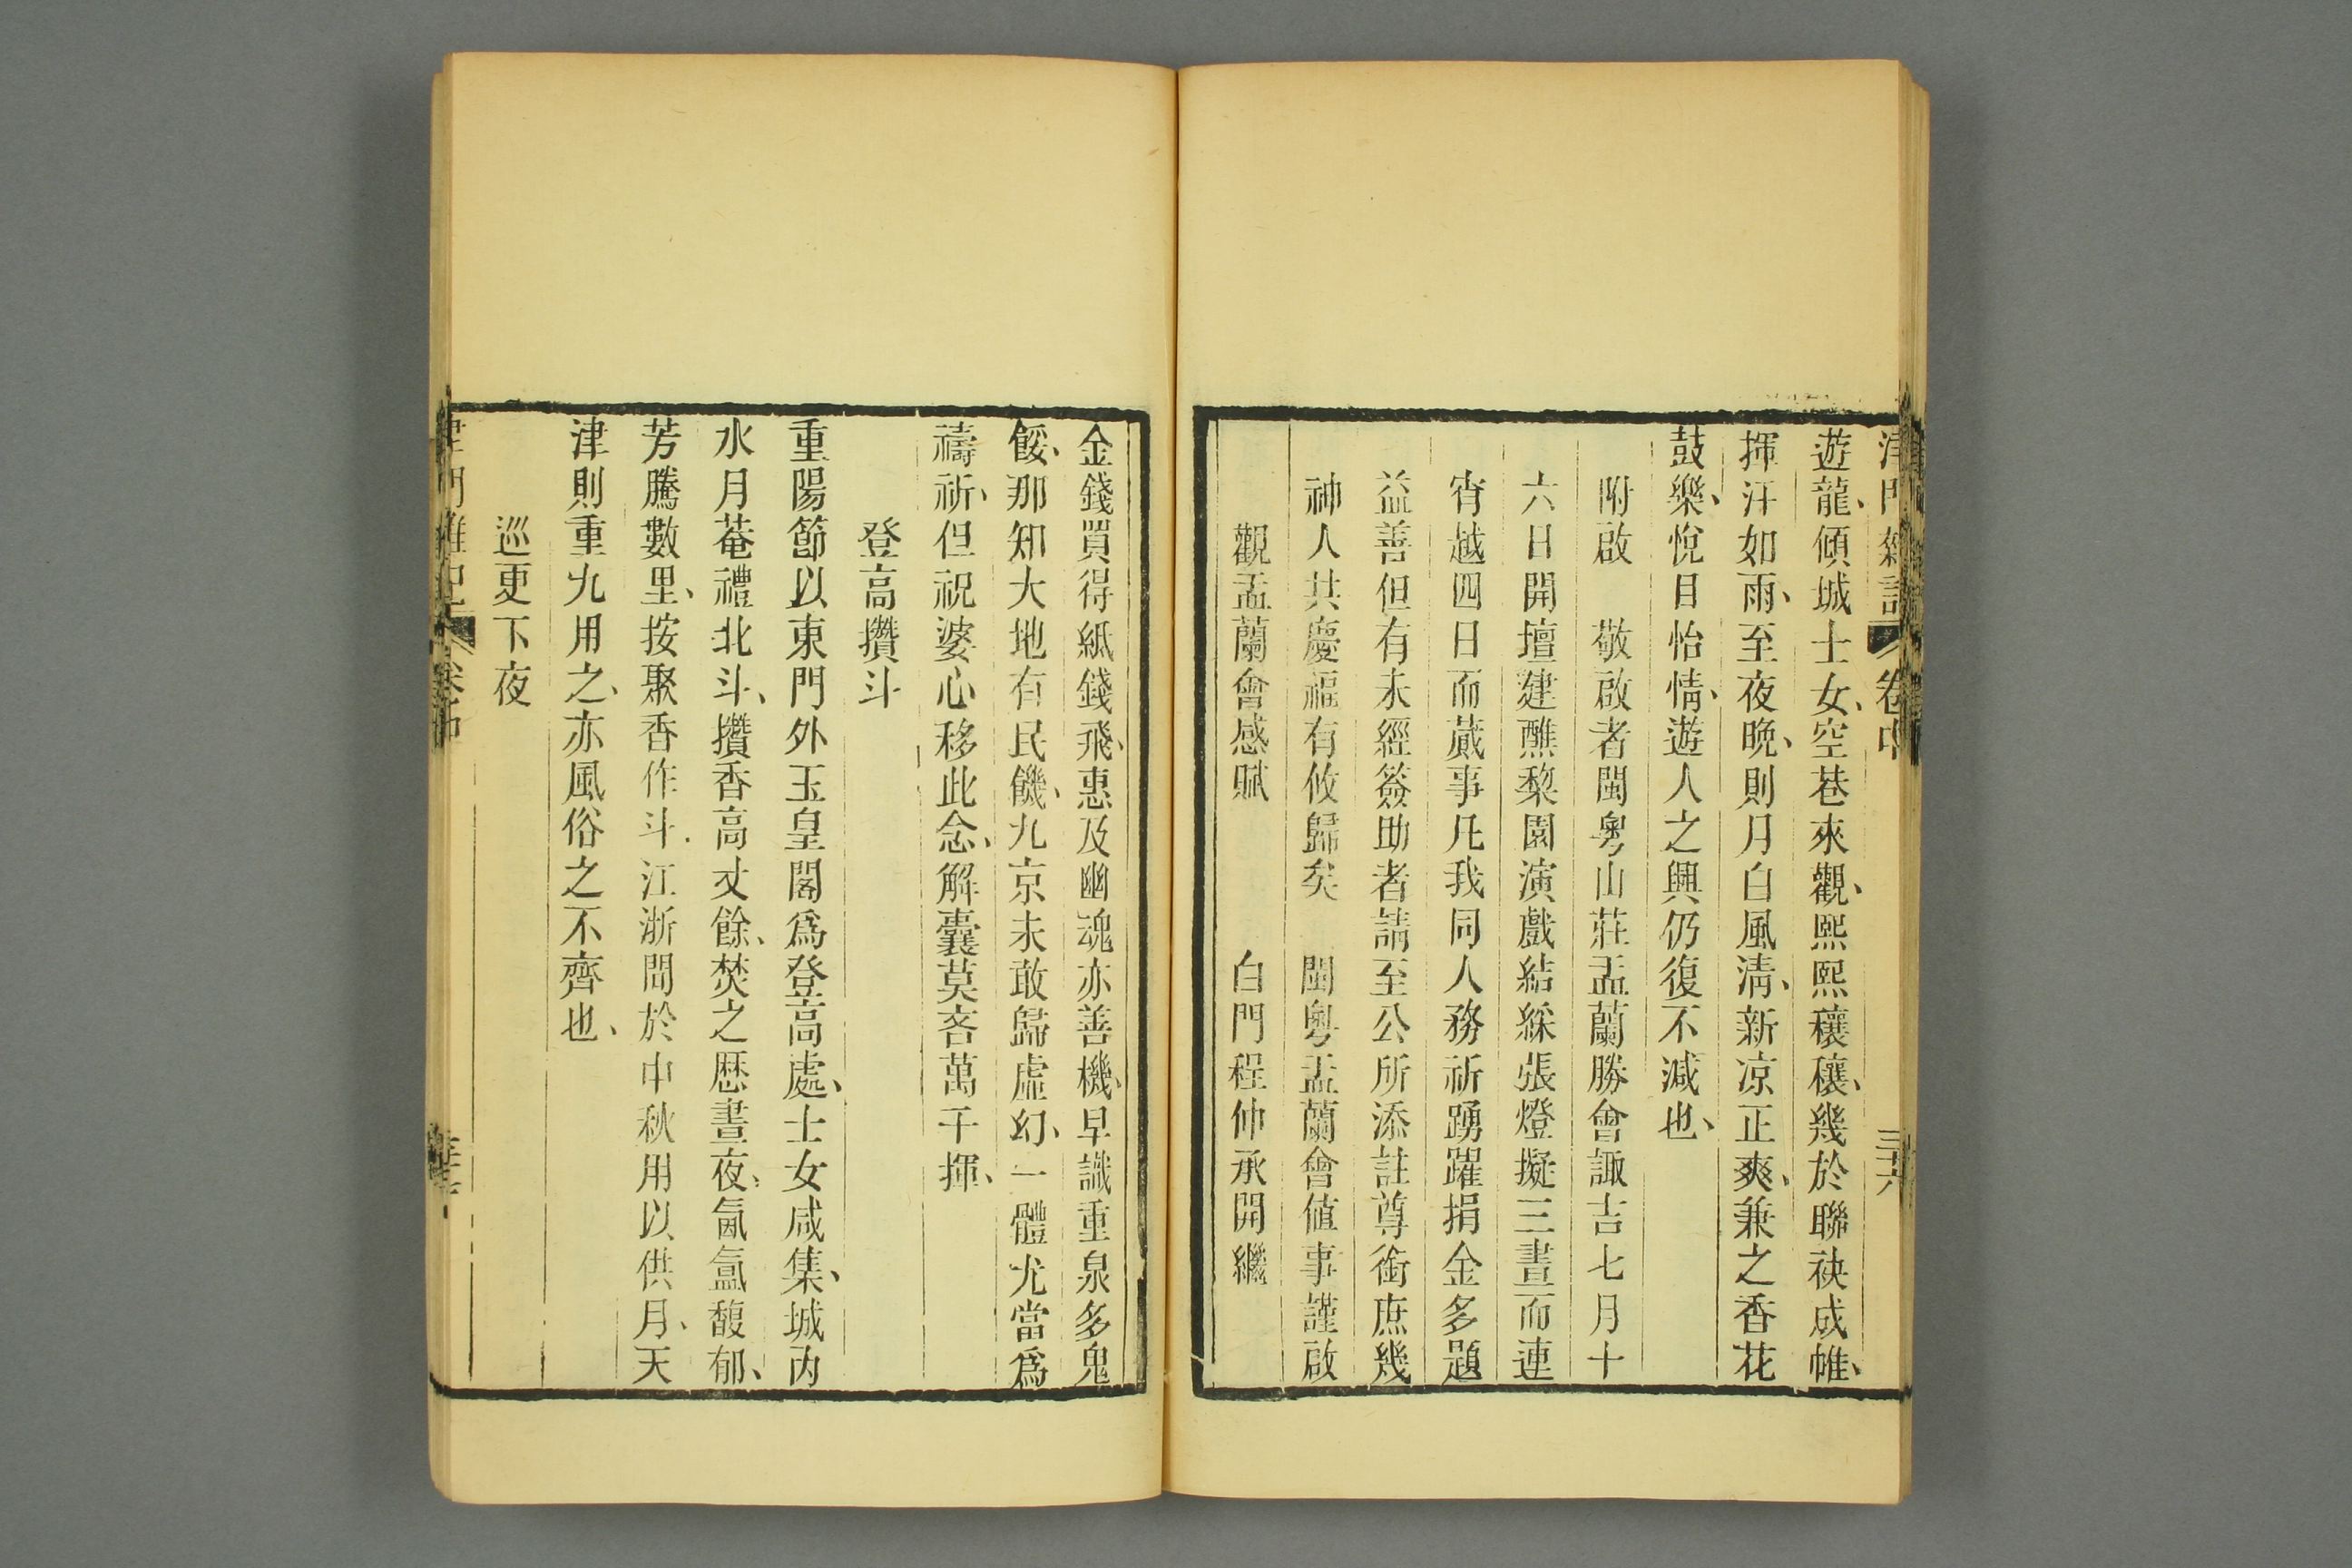 津門雜記 卷中 三六
遊龍、傾城士女、空巷來觀、熙熙穰穰、幾於聯袂成帷、
揮汗如雨、至夜晚、則月白風清、新凉正爽、兼之香花
鼓樂、悅目怡情、遊人之興仍復不減也、
附啟　敬啟者閩粵山莊盂蘭勝會諏吉七月十
六日開壇建醮棃園演戲結綵張燈擬三晝而連
宵越四日而蕆事凡我同人務祈踴躍捐金多題
益善但有未經簽助者請至公所添註尊銜庶幾
神人共慶福有攸歸矣　閩粵盂蘭會值事謹啟
觀盂蘭會感賦　白門程仲承開繼
金錢買得紙錢飛、惠及幽魂亦善機、早識重泉多鬼
餒、那知大地有民饑、九京未敢歸虛幻、一體尤當爲
禱祈、但祝婆心移此念、解囊莫吝萬千揮、
登高攢斗
重陽節以東門外玉皇閣爲登高處、士女咸集、城內
水月菴禮北斗、攢香高丈餘、焚之歷晝夜、氤氳馥郁、
芳騰數里、按聚香作斗、江浙間於中秋用以供月、天
津則重九用之、亦風俗之不齊也、
巡更下夜
津門雜記 卷中